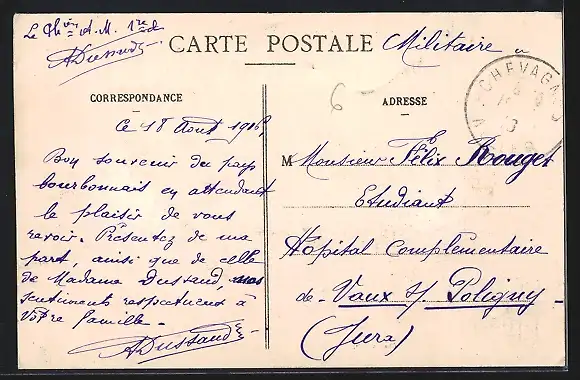 Le Phien A. M. 1re cl.
A Dussaud
CARTE POSTALE Militaire
6
CHEVAGNES
CORRESPONDANCE
ADRESSE
Ce 18 Aout 1916,
Bon souvenir du pays
bourbonnais en attendant
le plaisir de vous
revoir. Présentez de ma
part, ainsi que de celle
de Madame Dussaud, nos
sentiments respectueux à
Votre famille.
A Dussaud
M Monsieur Félix Rouget
Etudiant
Hôpital Complémentaire
de Vaux s/ Poligny
(Jura)